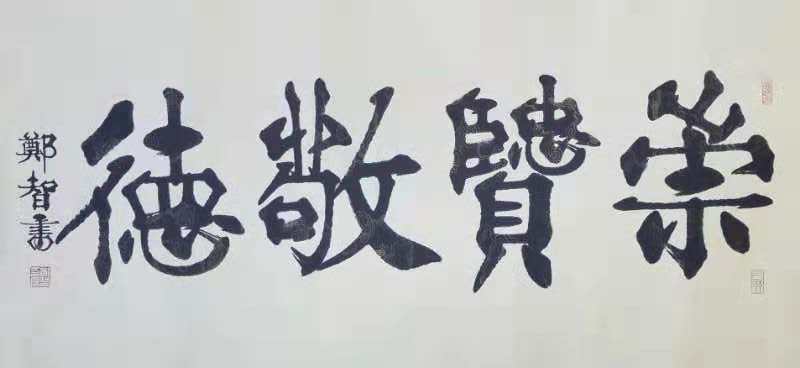 崇贒敬德
鄭智書